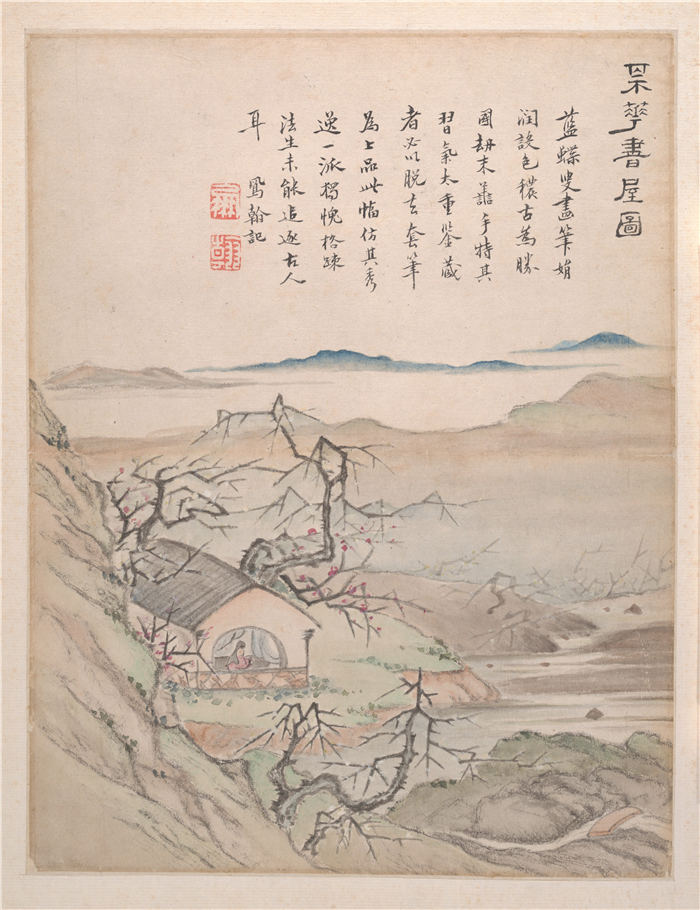 呆華書屋圖
藍蝶叟畫筆娟
潤設色穠古為勝
國刼末手特其
習氣太重鑒藏
者必以脫去套筆
為上品此幅仿其秀
逸一派獨愧格疎
法生未能追逐古人
耳 鳳翰記